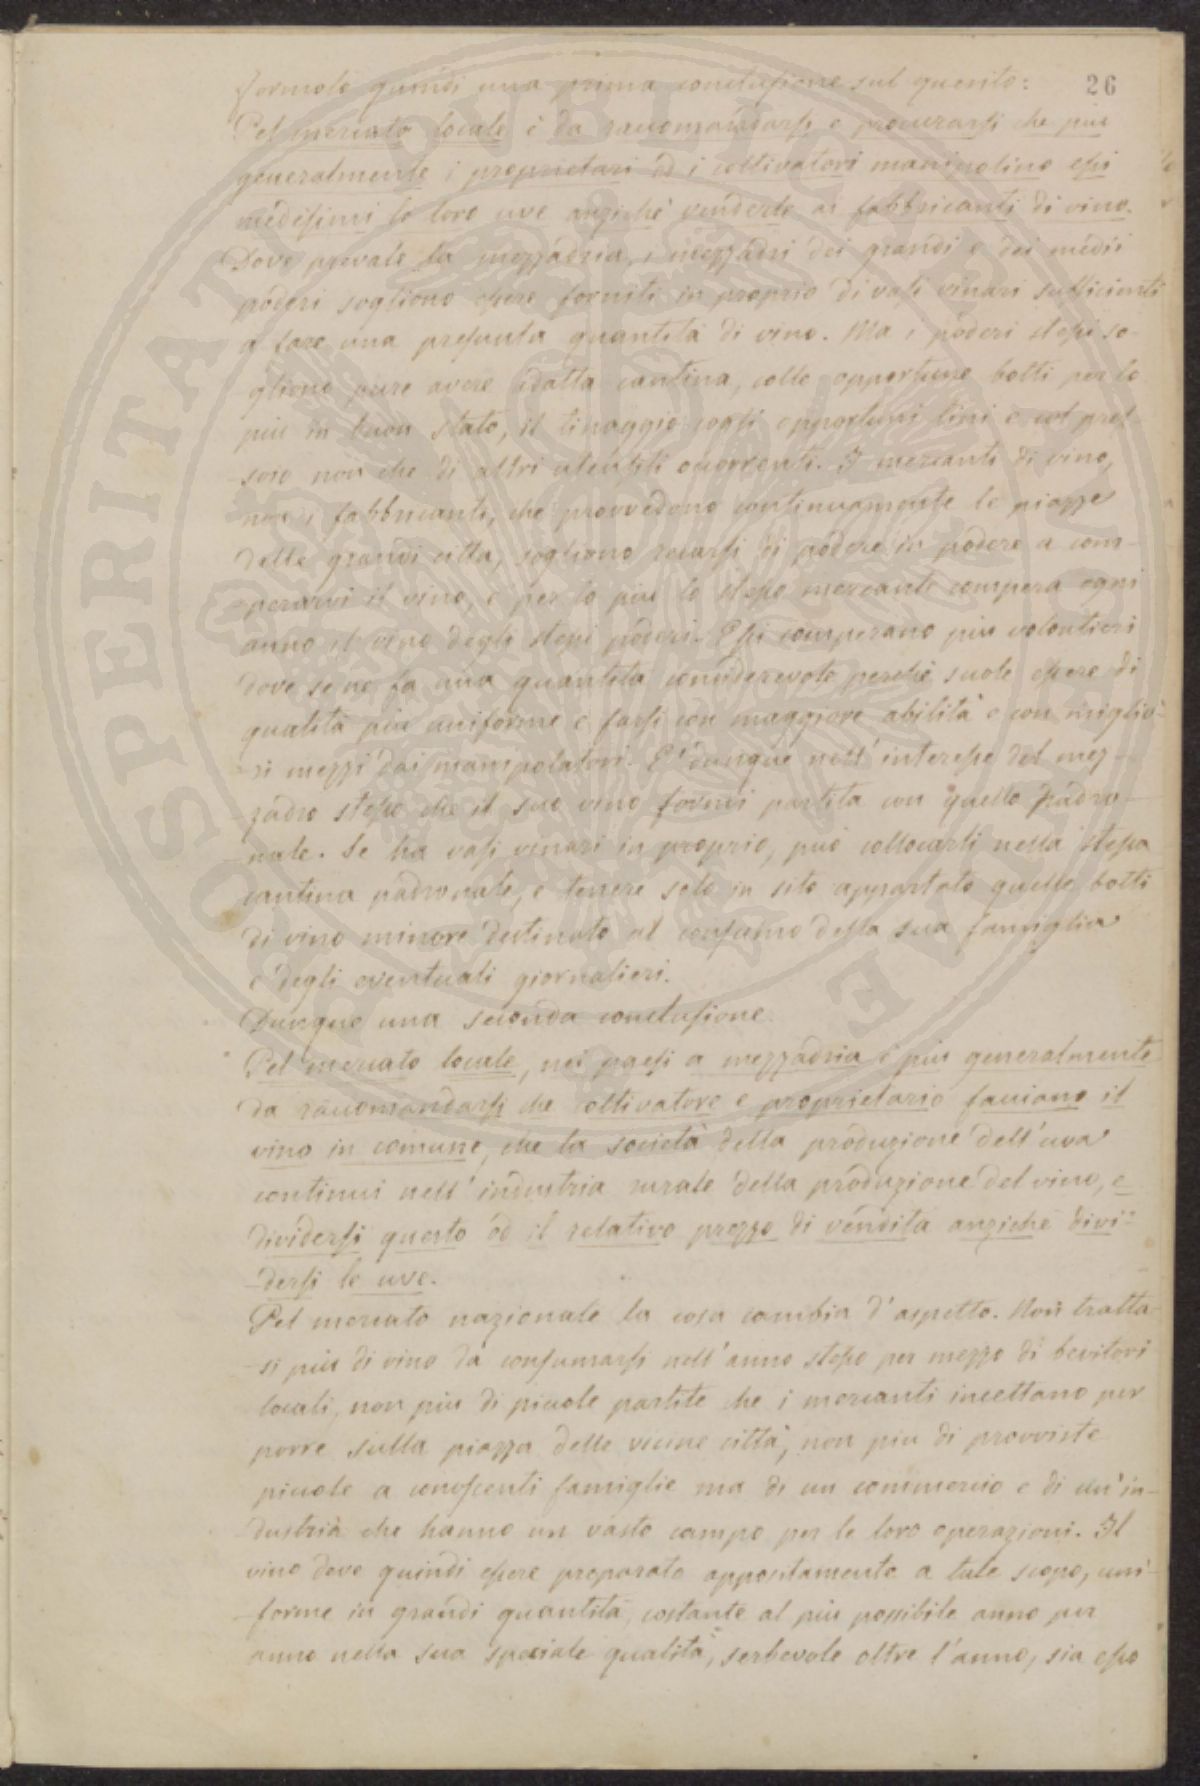 26
Formolo quindi una prima conclusione sul quesito:
Pel mercato locale è da raccomandarsi e procurarsi che più
generalmente i proprietari od i coltivatori manipolino essi
medesimi le loro uve anziché venderle ai fabbricanti di vino.
Dove prevale la mezzadria, i mezzadri dei grandi e dei medii
poderi sogliono essere forniti in proprio di vasi vinari sufficienti
a fare una presunta quantità di vino. Ma i poderi stessi so-
gliono pure avere adatta cantina, colle opportune botti per lo
più in buon stato, il tinaggio cogli opportuni tini e col pres-
soio non che di altri utensili occorrenti. I mercanti di vino,
non i fabbricanti, che provvedono continuamente le piazze
delle grandi città, sogliono recarsi di podere in podere a com-
perarvi il vino, e per lo più lo stesso mercante compera ogni
anno il vino degli stessi poderi. Essi comperano più volontieri
dove se ne fa una quantità considerevole perché suole essere di
qualità più uniforme e farsi con maggiore abilità e con miglio-
ri mezzi dai manipolatori. E' dunque nell'interesse del mez-
zadro stesso che il suo vino formi partita con quello padro-
nale. Se ha vasi vinari in proprio, può collocarli nella stessa
cantina padronale, e tenere solo in sito appartato quelle botti
di vino minore destinato al consumo della sua famiglia
e degli eventuali giornalieri.
Dunque una seconda conclusione.
Pel mercato locale, nei paesi a mezzadria è più generalmente
da raccomandarsi che coltivatore e proprietario facciano il
vino in comune, che la società della produzione dell'uva
continui nell'industria rurale della produzione del vino, e
dividersi questo od il relativo prezzo di vendita anziché divi-
dersi le uve.
Pel mercato nazionale la cosa cambia d'aspetto. Non tratta-
si più di vino da consumarsi nell'anno stesso per mezzo di bevitori
locali, non più di piccole partite che i mercanti incettano per
porre sulla piazza delle vicine città, non più di provviste
piccole a conoscenti famiglie ma di un commercio e di un'in-
dustria che hanno un vasto campo per le loro operazioni. Il
vino deve quindi essere preparato appositamente a tale scopo, uni-
forme in grandi quantità, costante al più possibile anno per
anno nella sua speciale qualità, serbevole oltre l'anno, sia esso
PROSPERITATI PUBLICAE AUGENDAE